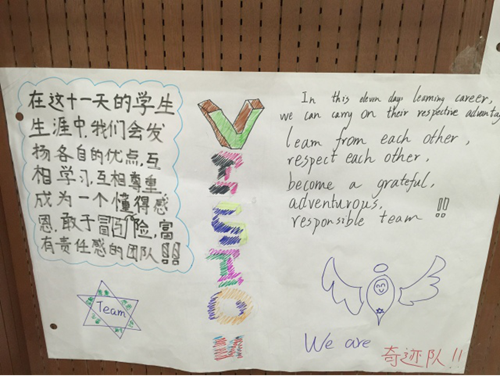 在这十一天的学生
生涯中,我们会发
扬各自的优点,互
相学习,互相尊重,
成为一个懂得感
恩,敢于冒险,富
有责任感的团队!!!
Team
VISION
In this eleven days learning career,
we can carry on their respective
learn from each other,
respect each other,
become a grateful,
adventurous,
responsible team !!
We are 奇迹队!!